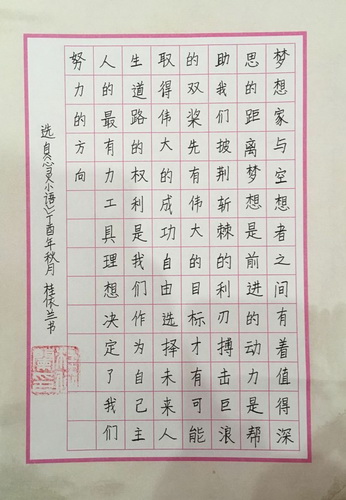 梦想家与空想者之间有着值得深
思的距离梦想是前进的动力是帮
助我们披荆斩棘的利刃搏击巨浪
的双桨先有伟大的目标才有可能
取得伟大的成功自由选择未来人
生道路的权利是我们作为自己主
人的最有力工具理想决定了我们
努力的方向
选自《心灵小语》丁酉年秋月 桂兰书